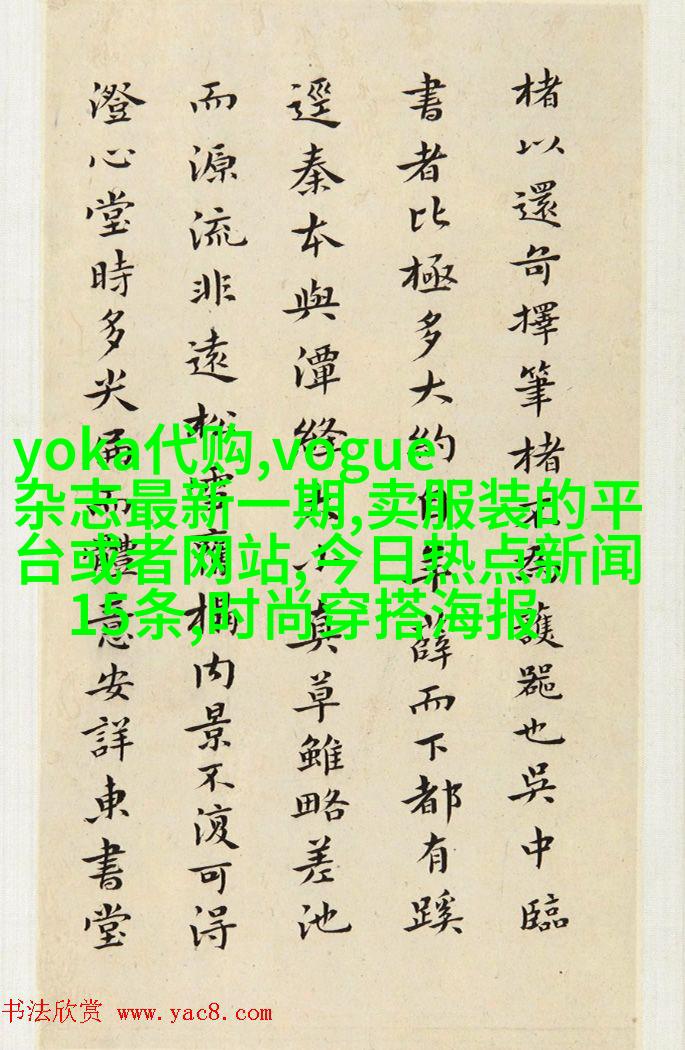 楮以還苟擇筆楮不為護器也吳中臨
書者比極多大約自率薛而下都有蹊
逕秦本與潭絳大小真草雖略差池
而源流非遠松
内景不復可得
澄心堂時多尖而
意安詳東書堂
yoka代购,vogue
杂志最新一期,卖服装的平
台或者网站,今日热点新闻
15条,时尚穿搭海报
书法欣赏 www.yac8.com